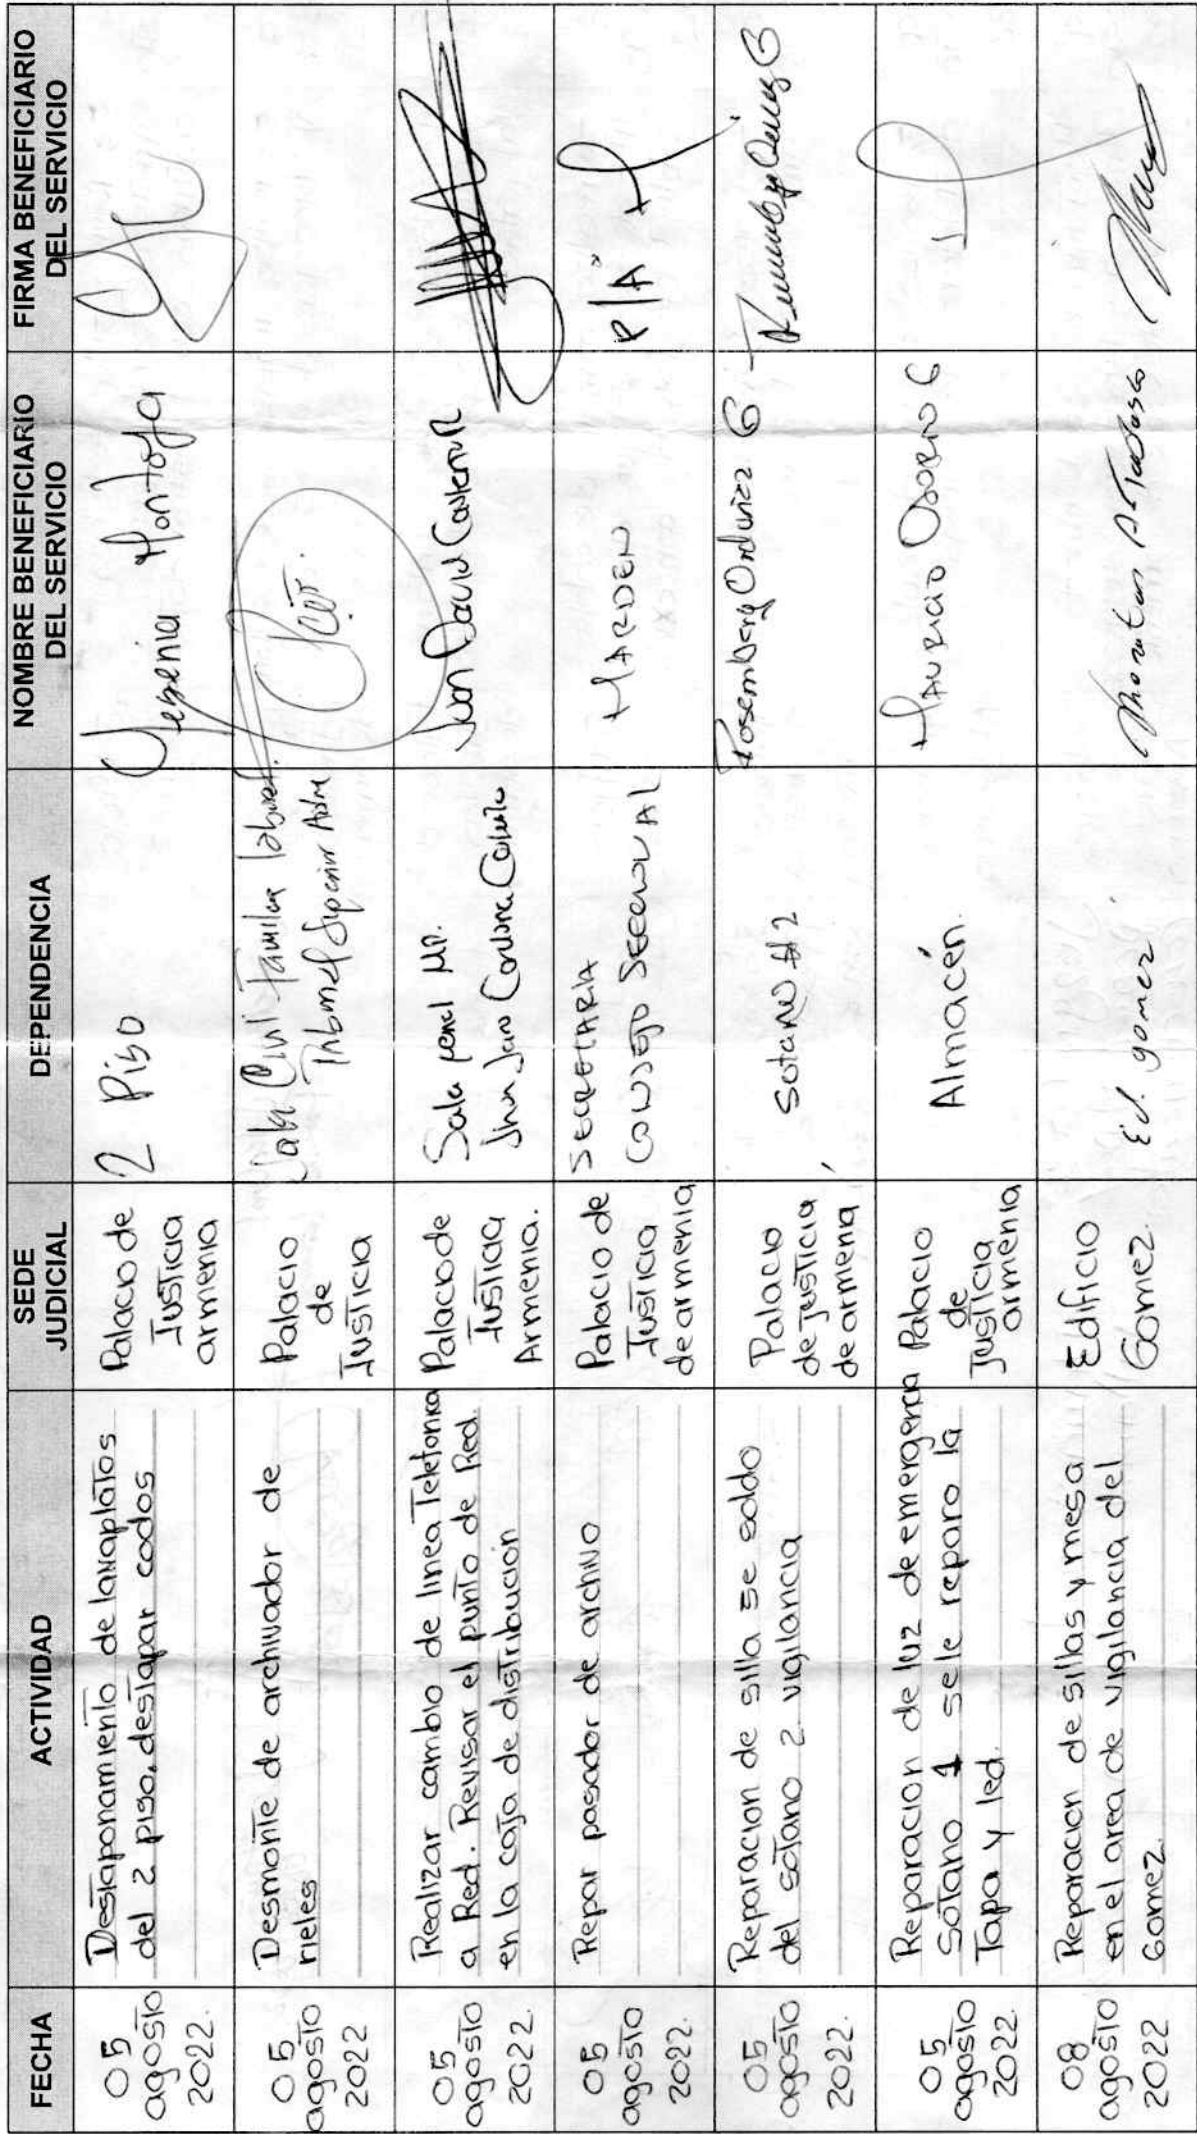 FECHA
ACTIVIDAD
SEDE
JUDICIAL
DEPENDENCIA
NOMBRE BENEFICIARIO
DEL SERVICIO
FIRMA BENEFICIARIO
DEL SERVICIO
05
agosto
2022.
Destaponamiento de lavaplatos
del 2 piso, destapar codos
Palacio de
Justicia
armenia
2 Piso
Yesenia Montoya
05
agosto
2022
Desmonte de archivador de
rieles
Palacio
de
Justicia
Sala Civil Familia laboral.
Tribunal Superior
05
agosto
2022.
Realizar cambio de linea Telefonica
a Red. Revisar el punto de Red.
en la caja de distribucion
Palacio de
Justicia
Armenia.
Sala penal MP.
Jhon Jairo Cardona
Juan David
05
agosto
2022.
Repar pasador de archivo
Palacio de
Justicia
de armenia
SECRETARIA
CONSEJO SECCIONAL
MARDEN
05
agosto
2022.
Reparacion de silla se soldo
del sotano 2 vigilancia
Palacio
de justicia
de armenia
Sotano #2
Rosemberg Orduñez G
05
agosto
2022
Reparacion de luz de emergencia
Sotano 1 se le reparo la
Tapa y led.
Palacio
de
Justicia
armenia
Almacén.
MAURICIO OSORIO G
08
agosto
2022
Reparacion de sillas y mesa
en el area de vigilancia del
Gomez.
Edificio
Gomez.
Ed. gomez